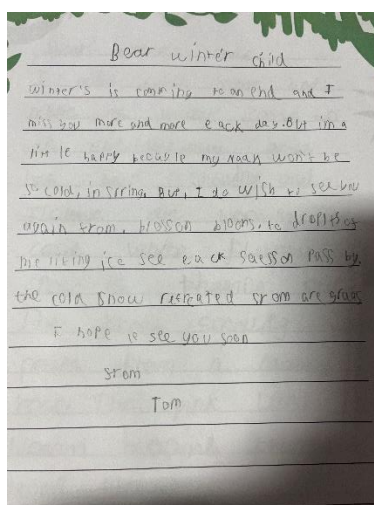 Bear winter child
winter's is comeing to an end and I
miss you more and more eack day. But im a
little happy because my Naan won't be
so cold, in Siring. But, I do wish to see you
again from, blosson blooms, to droplts of
melting ice see eack saesson Pass by
the cold snow retreated srom are grass
I hope is see you soon
srom
Tom